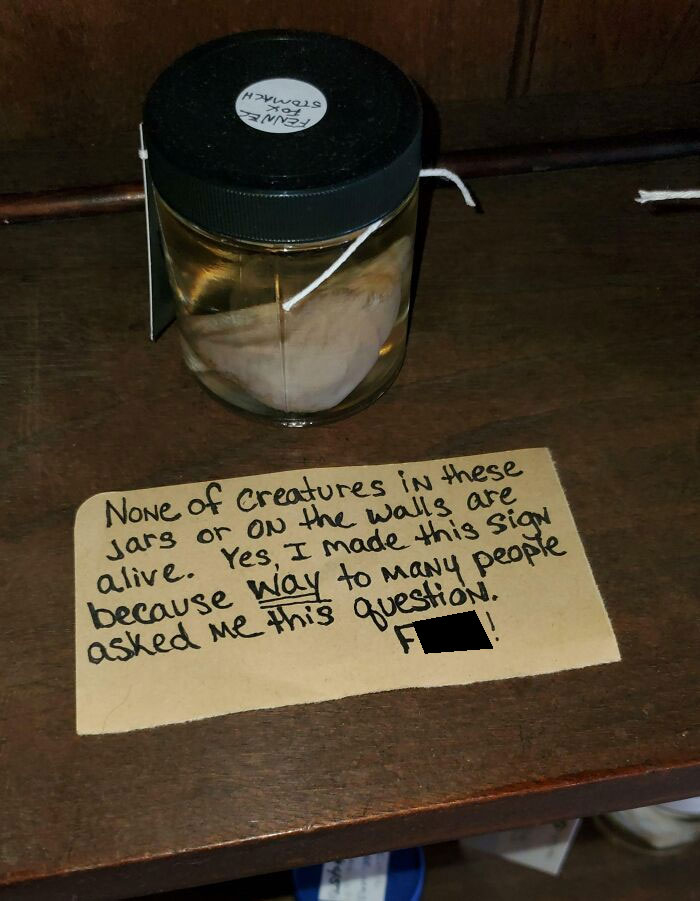 FENNEC
FOX
STOMACH
NONE of creatures iN these
jars or ON the walls are
alive. Yes, I made this sign
because way to many people
asked me this question.
F !